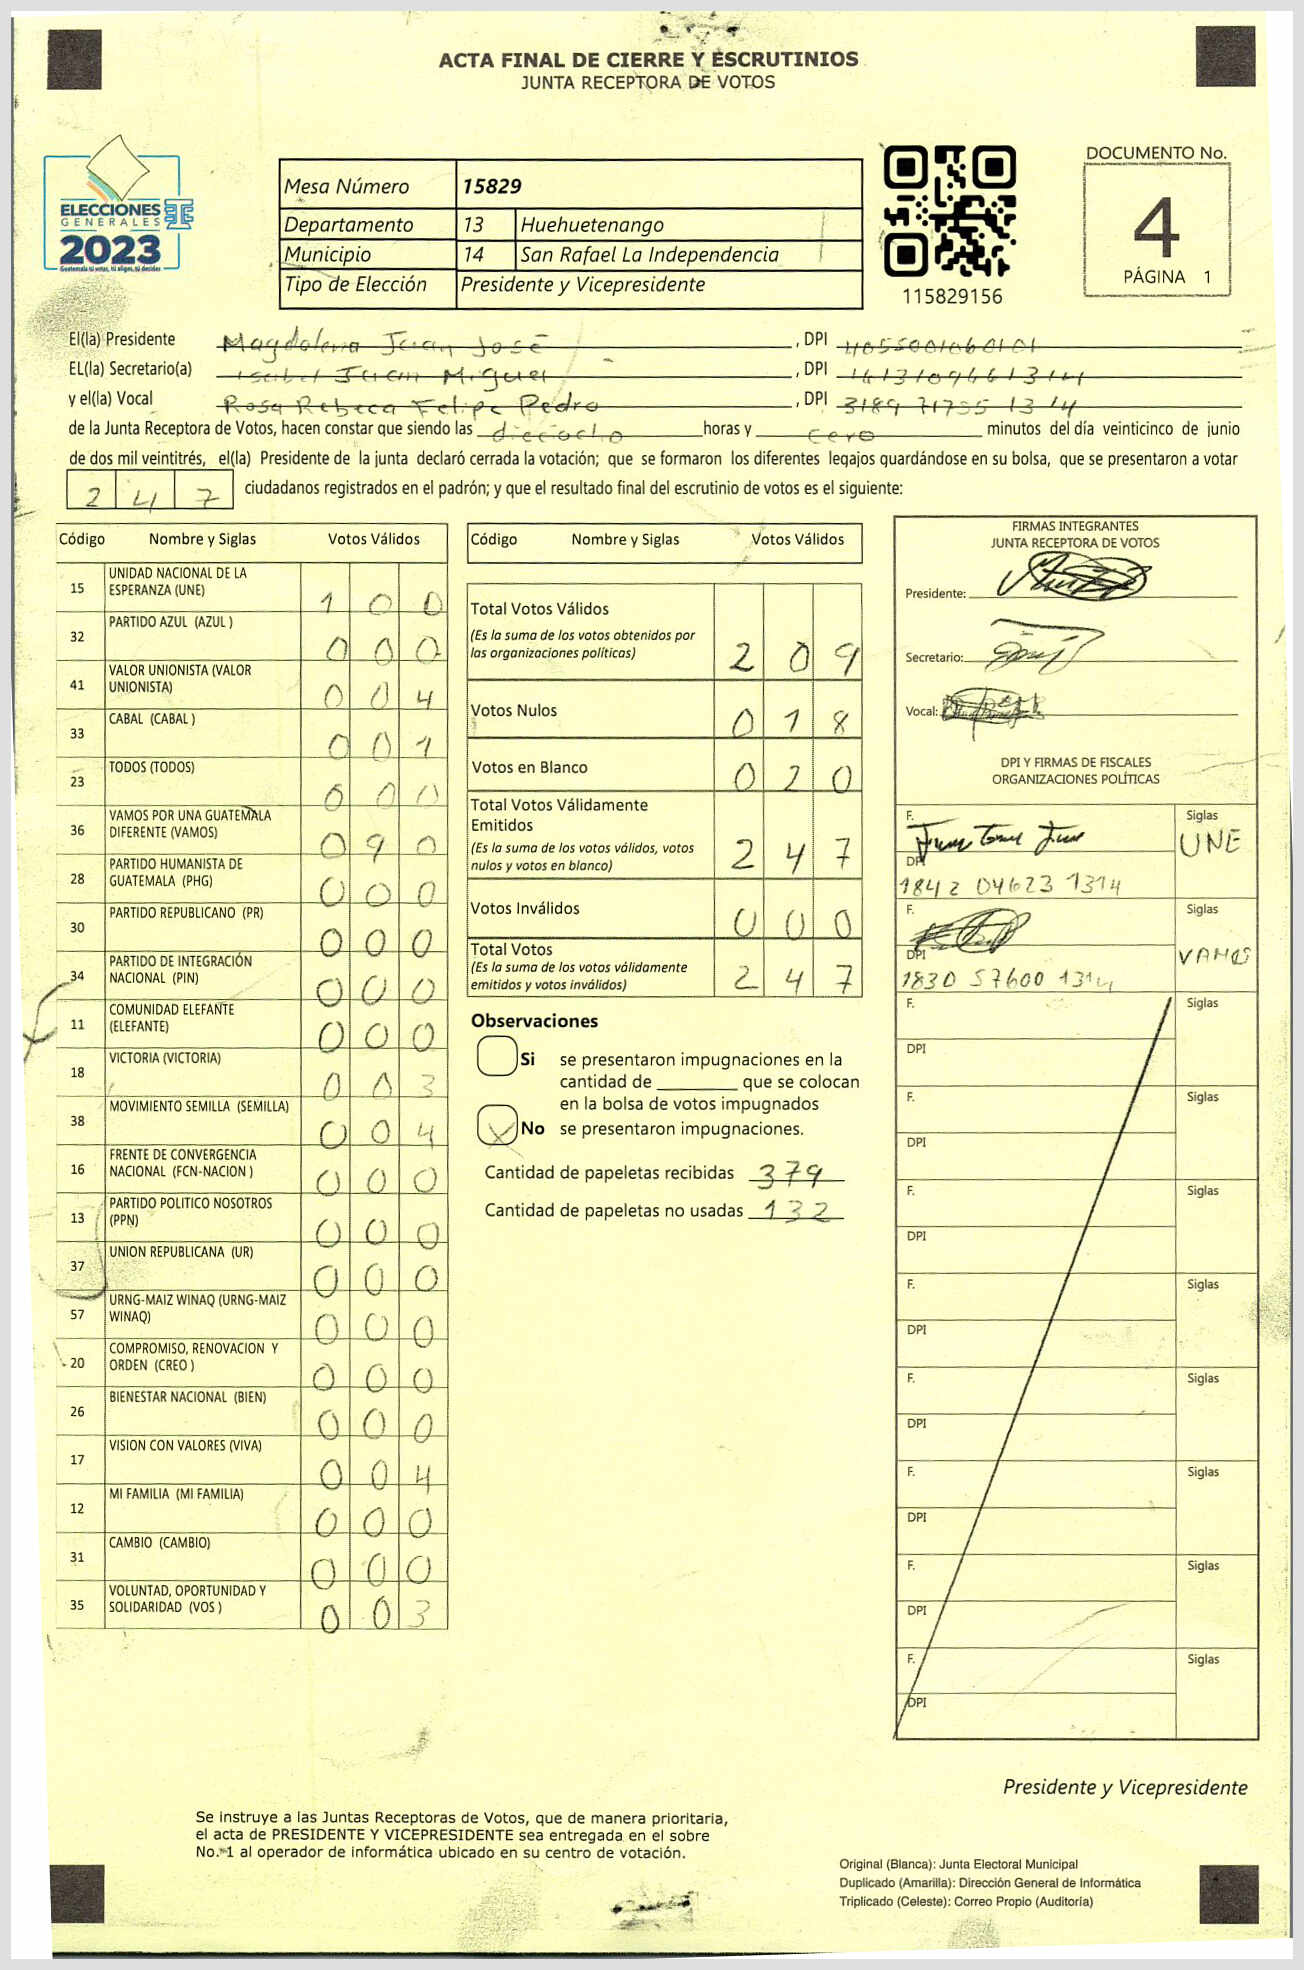 ACTA FINAL DE CIERRE Y ESCRUTINIOS
JUNTA RECEPTORA DE VOTOS
ELECCIONES
GENERALES
2023
Guatemala tú votas, tú eliges, tú decides
Mesa Número 15829
Departamento 13 Huehuetenango
Municipio 14 San Rafael La Independencia
Tipo de Elección Presidente y Vicepresidente
115829156
DOCUMENTO No.
4
PÁGINA 1
El(la) Presidente Magdalena Juan José , DPI
EL(la) Secretario(a) Isabel Juan Miguel , DPI
y el(la) Vocal Rosa Rebeca Felipe Pedro , DPI
de la Junta Receptora de Votos, hacen constar que siendo las dieciocho horas y cero minutos del día veinticinco de junio
de dos mil veintitrés, el(la) Presidente de la junta declaró cerrada la votación; que se formaron los diferentes legajos guardándose en su bolsa, que se presentaron a votar
247 ciudadanos registrados en el padrón; y que el resultado final del escrutinio de votos es el siguiente:
Código Nombre y Siglas Votos Válidos
15 UNIDAD NACIONAL DE LA ESPERANZA (UNE) 1 0 0
32 PARTIDO AZUL (AZUL ) 0 0 0
41 VALOR UNIONISTA (VALOR UNIONISTA) 0 0 4
33 CABAL (CABAL ) 0 0 1
23 TODOS (TODOS) 0 0 0
36 VAMOS POR UNA GUATEMALA DIFERENTE (VAMOS) 0 9 0
28 PARTIDO HUMANISTA DE GUATEMALA (PHG) 0 0 0
30 PARTIDO REPUBLICANO (PR) 0 0 0
34 PARTIDO DE INTEGRACIÓN NACIONAL (PIN) 0 0 0
11 COMUNIDAD ELEFANTE (ELEFANTE) 0 0 0
18 VICTORIA (VICTORIA) 0 0 3
38 MOVIMIENTO SEMILLA (SEMILLA) 0 0 4
16 FRENTE DE CONVERGENCIA NACIONAL (FCN-NACION ) 0 0 0
13 PARTIDO POLITICO NOSOTROS (PPN) 0 0 0
37 UNION REPUBLICANA (UR) 0 0 0
57 URNG-MAIZ WINAQ (URNG-MAIZ WINAQ) 0 0 0
20 COMPROMISO, RENOVACION Y ORDEN (CREO ) 0 0 0
26 BIENESTAR NACIONAL (BIEN) 0 0 0
17 VISION CON VALORES (VIVA) 0 0 4
12 MI FAMILIA (MI FAMILIA) 0 0 0
31 CAMBIO (CAMBIO) 0 0 0
35 VOLUNTAD, OPORTUNIDAD Y SOLIDARIDAD (VOS ) 0 0 3
Código Nombre y Siglas Votos Válidos
Total Votos Válidos 2 0 9
(Es la suma de los votos obtenidos por
las organizaciones políticas)
Votos Nulos 0 1 8
Votos en Blanco 0 2 0
Total Votos Válidamente
Emitidos 2 4 7
(Es la suma de los votos válidos, votos
nulos y votos en blanco)
Votos Inválidos 0 0 0
Total Votos 2 4 7
(Es la suma de los votos válidamente
emitidos y votos inválidos)
Observaciones
Si se presentaron impugnaciones en la
cantidad de ________ que se colocan
en la bolsa de votos impugnados
X No se presentaron impugnaciones.
Cantidad de papeletas recibidas 379
Cantidad de papeletas no usadas 132
FIRMAS INTEGRANTES
JUNTA RECEPTORA DE VOTOS
Presidente:
Secretario:
Vocal:
DPI Y FIRMAS DE FISCALES
ORGANIZACIONES POLÍTICAS
F. Siglas
UNE
DPI
1842 04623 1314
F. Siglas
VAMOS
DPI
1830 57600 1314
F. Siglas
DPI
F. Siglas
DPI
F. Siglas
DPI
F. Siglas
DPI
F. Siglas
DPI
F. Siglas
DPI
F. Siglas
DPI
F. Siglas
DPI
Presidente y Vicepresidente
Se instruye a las Juntas Receptoras de Votos, que de manera prioritaria,
el acta de PRESIDENTE Y VICEPRESIDENTE sea entregada en el sobre
No. 1 al operador de informática ubicado en su centro de votación.
Original (Blanca): Junta Electoral Municipal
Duplicado (Amarilla): Dirección General de Informática
Triplicado (Celeste): Correo Propio (Auditoría)